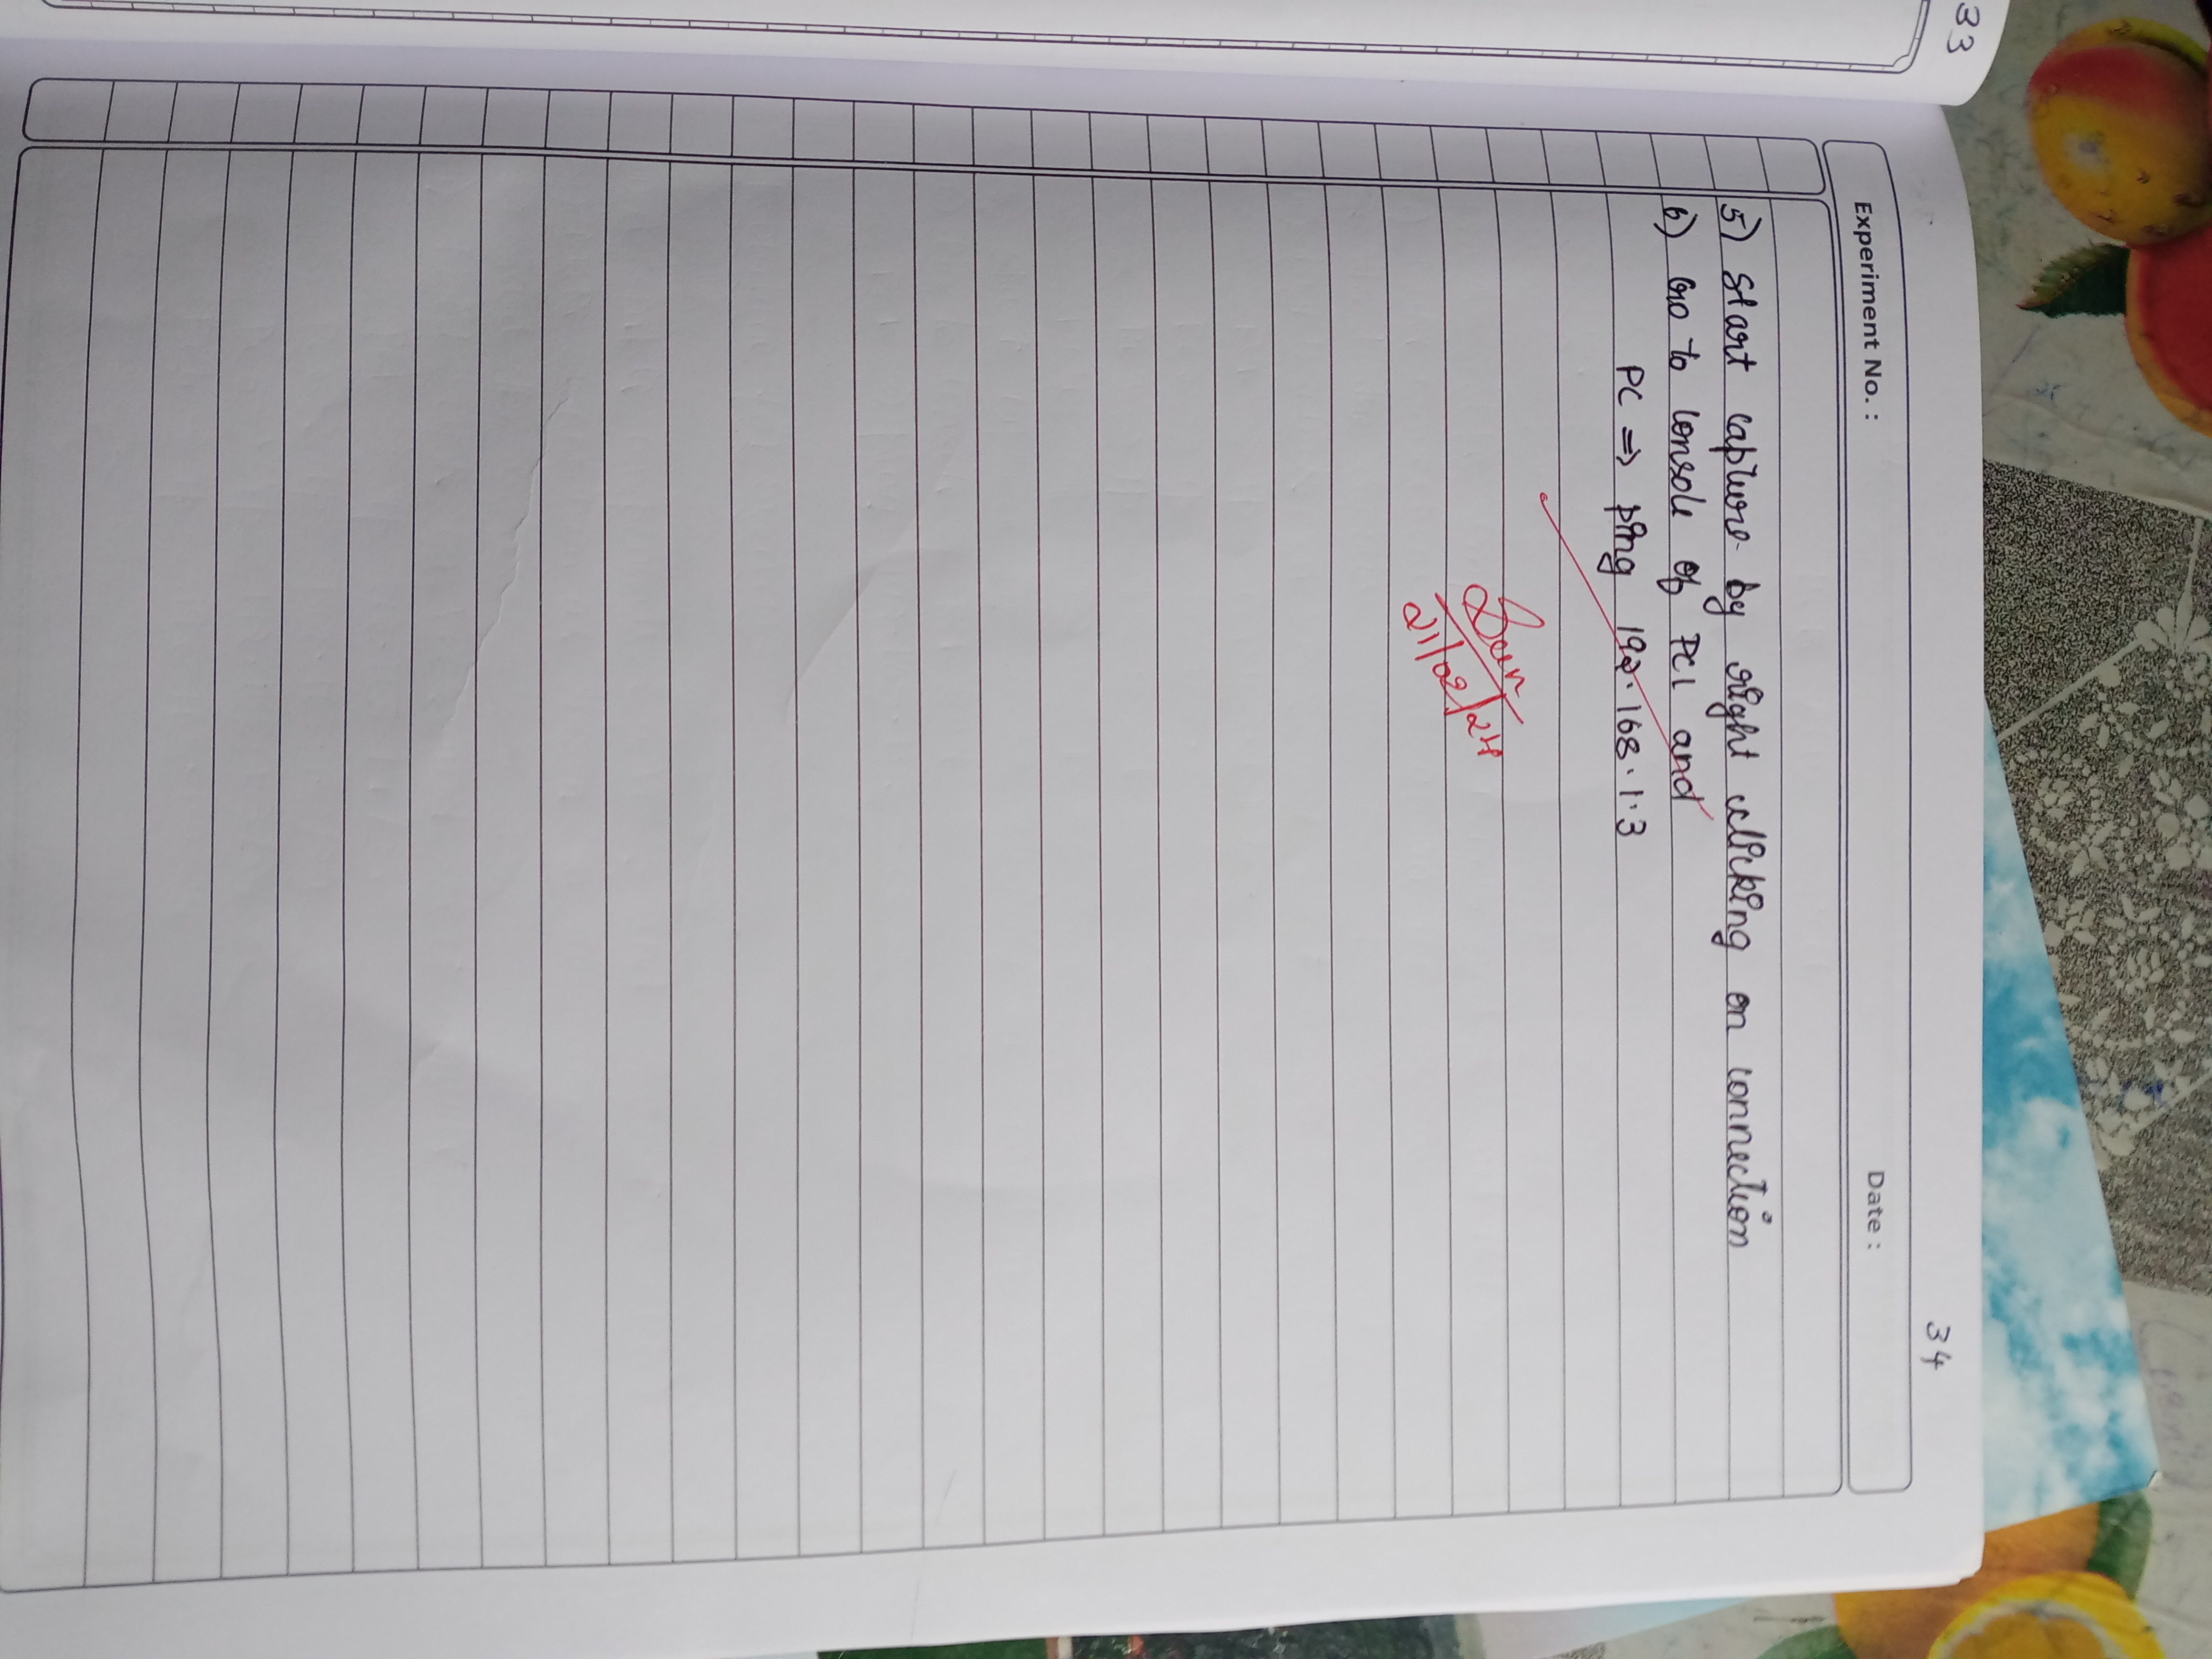 33
34
Experiment No. : Date :
5) Start capture by right clicking on connection
6) Go to console of PC1 and
PC => ping 192.168.1.3
21/02/24